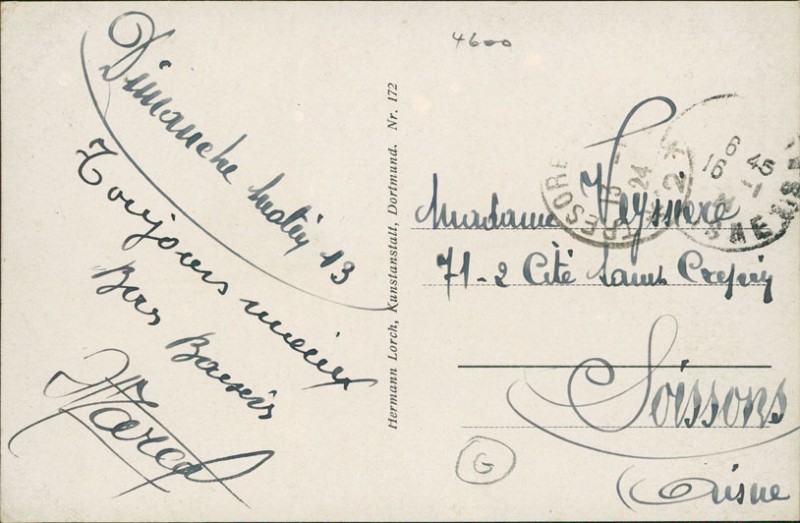 4600
Dimanche matin 13
Toujours mieux
Bons Baisers
Marcel
Hermann Lorch, Kunstanstalt, Dortmund. Nr. 172
TRESOR
13
24
2 *
6 45
16 - 1
Madame Veyssere
71-2 Cité Saint Crépin
Soissons
(Aisne
G